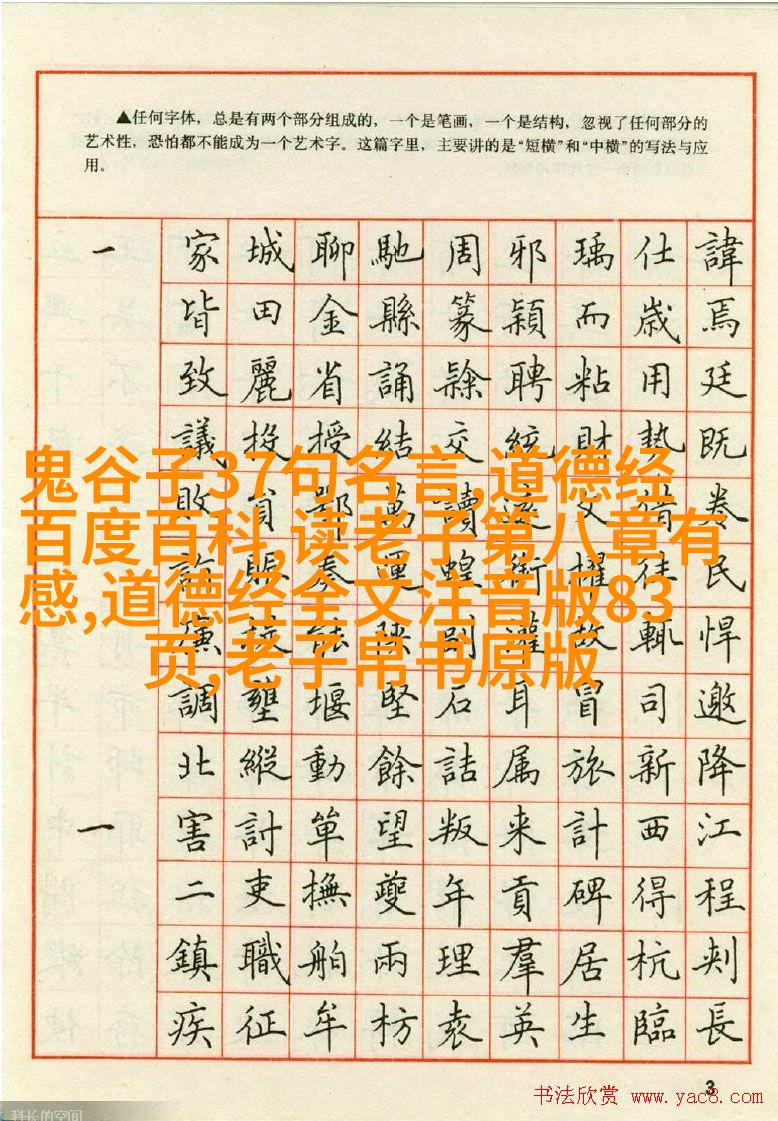 ▲任何字体，总是有两个部分组成的，一个是笔画，一个是结构，忽视了任何部分的
艺术性，恐怕都不能成为一个艺术字。这篇字里，主要讲的是“短横”和“中横”的写法与应
用。
一 家城聊馳周邪瑀仕諱
皆田金縣篆穎而歳焉
致麗省誦隸聘粘用廷
議投授結交統財勢既
鬼谷子37句名言,道德经
百度百科,读老子第八章有
感,道德经全文注音版83
页,老子帛书原版
民
輒悍
調壅堰堅石耳冒司邀
北縱動餘詰属旅新降
一 害討単望叛来計西江
二吏撫夔年貢碑得程
鎮職舶兩理羣居杭刺
疾征牟枋袁英生臨長
3
书法欣赏 www.yac8.com
科长的空间